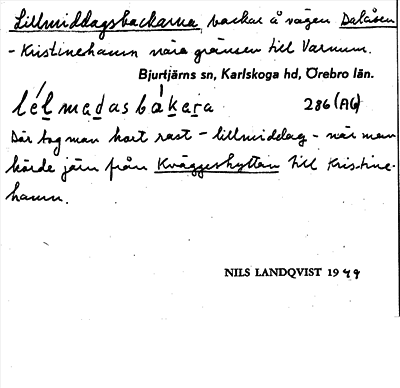 Lillmiddagsbackarna, backar å vägen Dalåsen
- Kristinehamn nära gränsen till Varnum.
Bjurtjärns sn, Karlskoga hd, Örebro län.
lélmadasbákara 286 (AG)
Där tog man kort rast - lillmiddag - när man
körde järn från Kväggeshyttan till Kristine-
hamn.
NILS LANDQVIST 1949